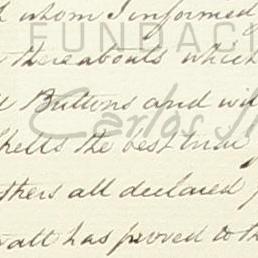 whom I informed
FUNDACI
thereabouts which
Buttons and wi
Carlos Sl
Shells the best
thers all declared
att has proved to th